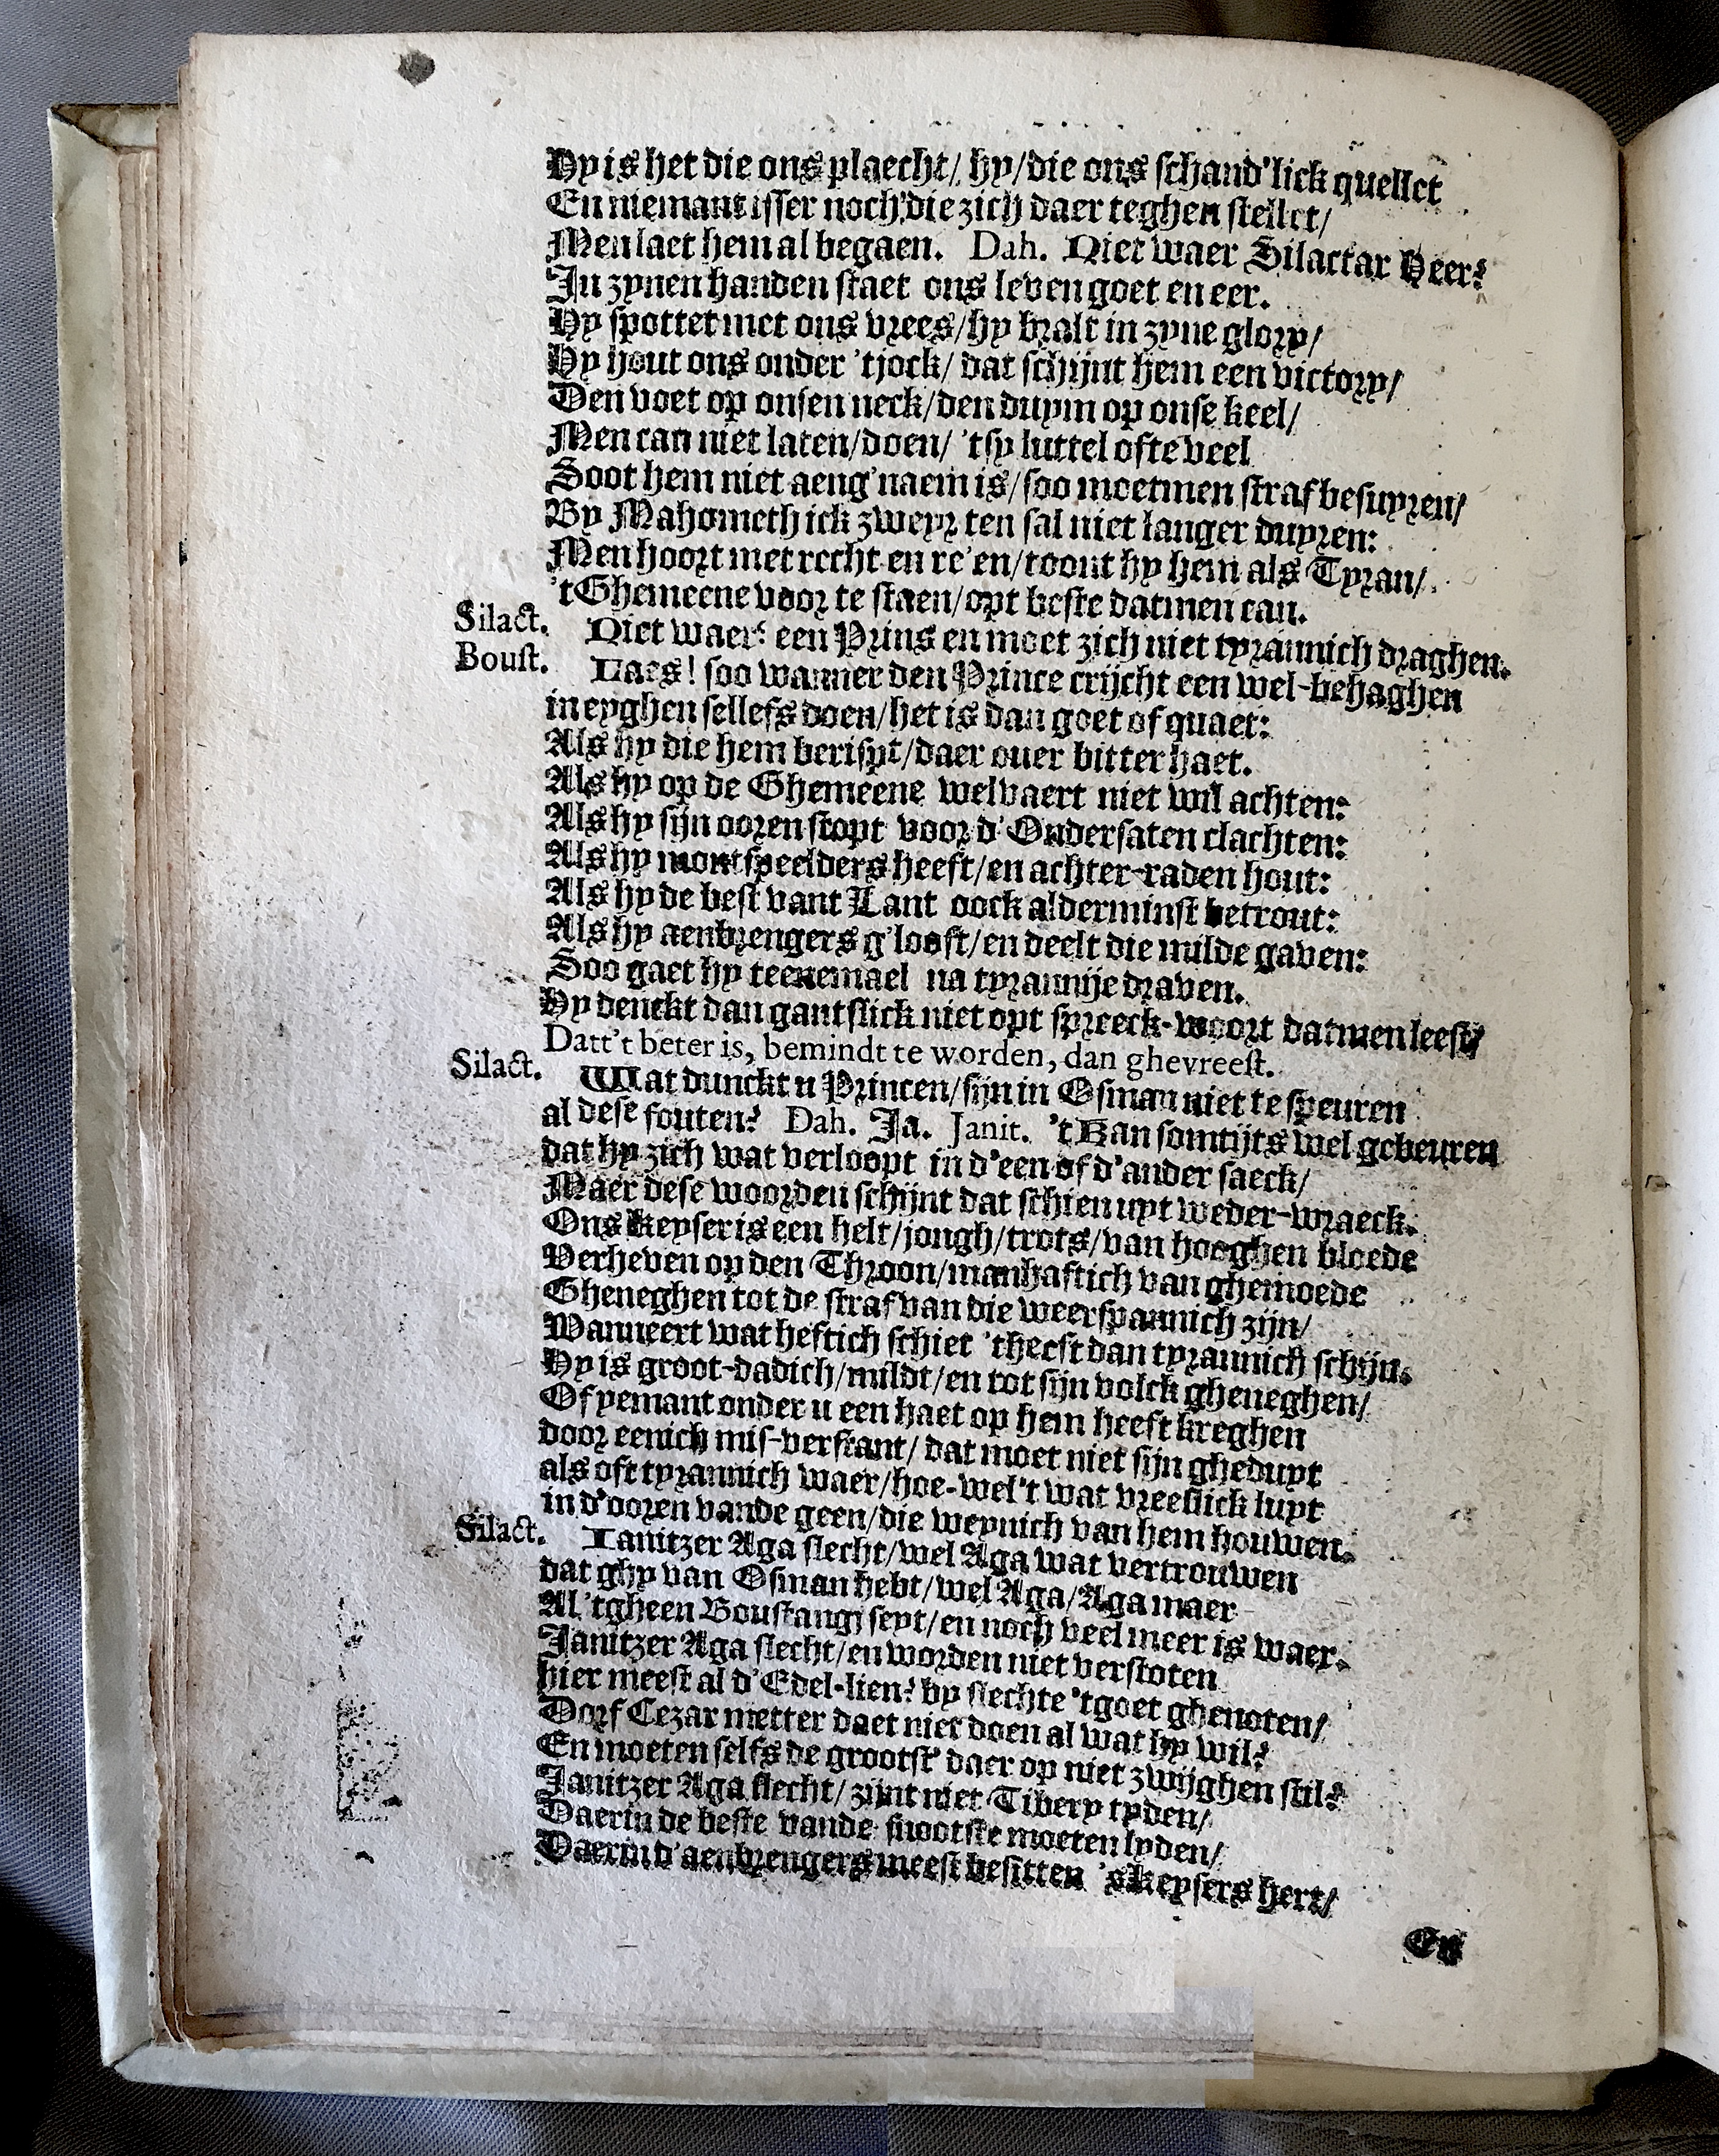 Hy is het die ons plaecht/ hy/die ons schand'lick quellet
En niemant isser noch/die zich daer teghen stellet/
Men laet hem al begaen. Dah. Niet waer Silactar Heer?
In zynen handen staet ons leven goet en eer.
Hy spottet met ons vrees/hy bralt in zyne glory/
Hy hout ons onder 'tjock/ dat schijnt hem een victory/
Den voet op onsen neck/den duym op onse keel/
Men can niet laten/doen/ 'tsy luttel ofte veel
Soot hem niet aeng'naem is/soo moetmen straf besuyren/
By Mahometh ick zweyr ten sal niet langer duyren:
Men hoort met recht en re'en/toont hy hem als Tyran/
't Ghemeene voor te staen/opt beste datmen can.
Silact. Niet waer? een Prins en moet zich niet tyrannich draghen.
Boust. Laes! soo wanner den Prince crijcht een wel-behaghen
in eyghen sellefs doen/het is dan goet of quaet:
Als hy die hem berispt/daer over bitter haet.
Als hy op de Ghemeene welvaert niet wil achten:
Als hy sijn ooren stopt voor d'Ondersaten clachten:
Als hy montspeelders heeft/en achter-raden hout:
Als hy de best vant Lant oock alderminst betrout:
Als hy aenbrengers g'looft/en deelt die milde gaven:
Soo gaet hy teenemael na tyrannije draven.
Hy denckt dan gantslick niet opt spreeck-woort datmen leest/
Datt't beter is, bemindt te worden, dan ghevreest.
Silact. Wat dunckt u Princen/sijn in Osman niet te speuren
al dese fouten? Dah. Ja. Janit. 't Kan somtijts wel gebeuren
dat hy zich wat verloopt in d'een of d'ander saeck/
Maer dese woorden schijnt dat schien uyt weder-wraeck.
Ons Keyser is een helt/jongh/trots/van hooghen bloede
Verheven op den Throon/manhaftich van ghemoede
Gheneghen tot de straf van die weerspannich zijn/
Wanneert wat heftich schiet 'theeft dan tyrannich schijn.
Hy is groot-dadich/mildt/en tot sijn volck gheneghen/
Of yemant onder u een haet op hem heeft kreghen
door eenich mis-verstant/ dat moet niet sijn gheduyt
als oft tyrannich waer/hoe-wel't wat vreeslick luyt
in d'ooren vande geen/die weynich van hem houwen.
Silact. Ianitzer Aga slecht/wel Aga wat vertrouwen
dat ghy van Osman hebt/wel Aga/Aga maer
Al 'tgheen Boustangj seyt/en noch veel meer is waer.
Janitzer Aga slecht/en worden niet verstoten
hier meest al d'Edel-lien? by slechte 'tgoet ghenoten/
Dorf Cezar metter daet niet doen al wat hy wil?
En moeten selfs de grootst' daer op niet zwijghen stil?
Janitzer Aga slecht/ zijnt niet Tibery tyden/
Daerin de beste vande snootste moeten lyden/
Daerin d'aenbrengers meest besitten 'sKeysers hert/
En